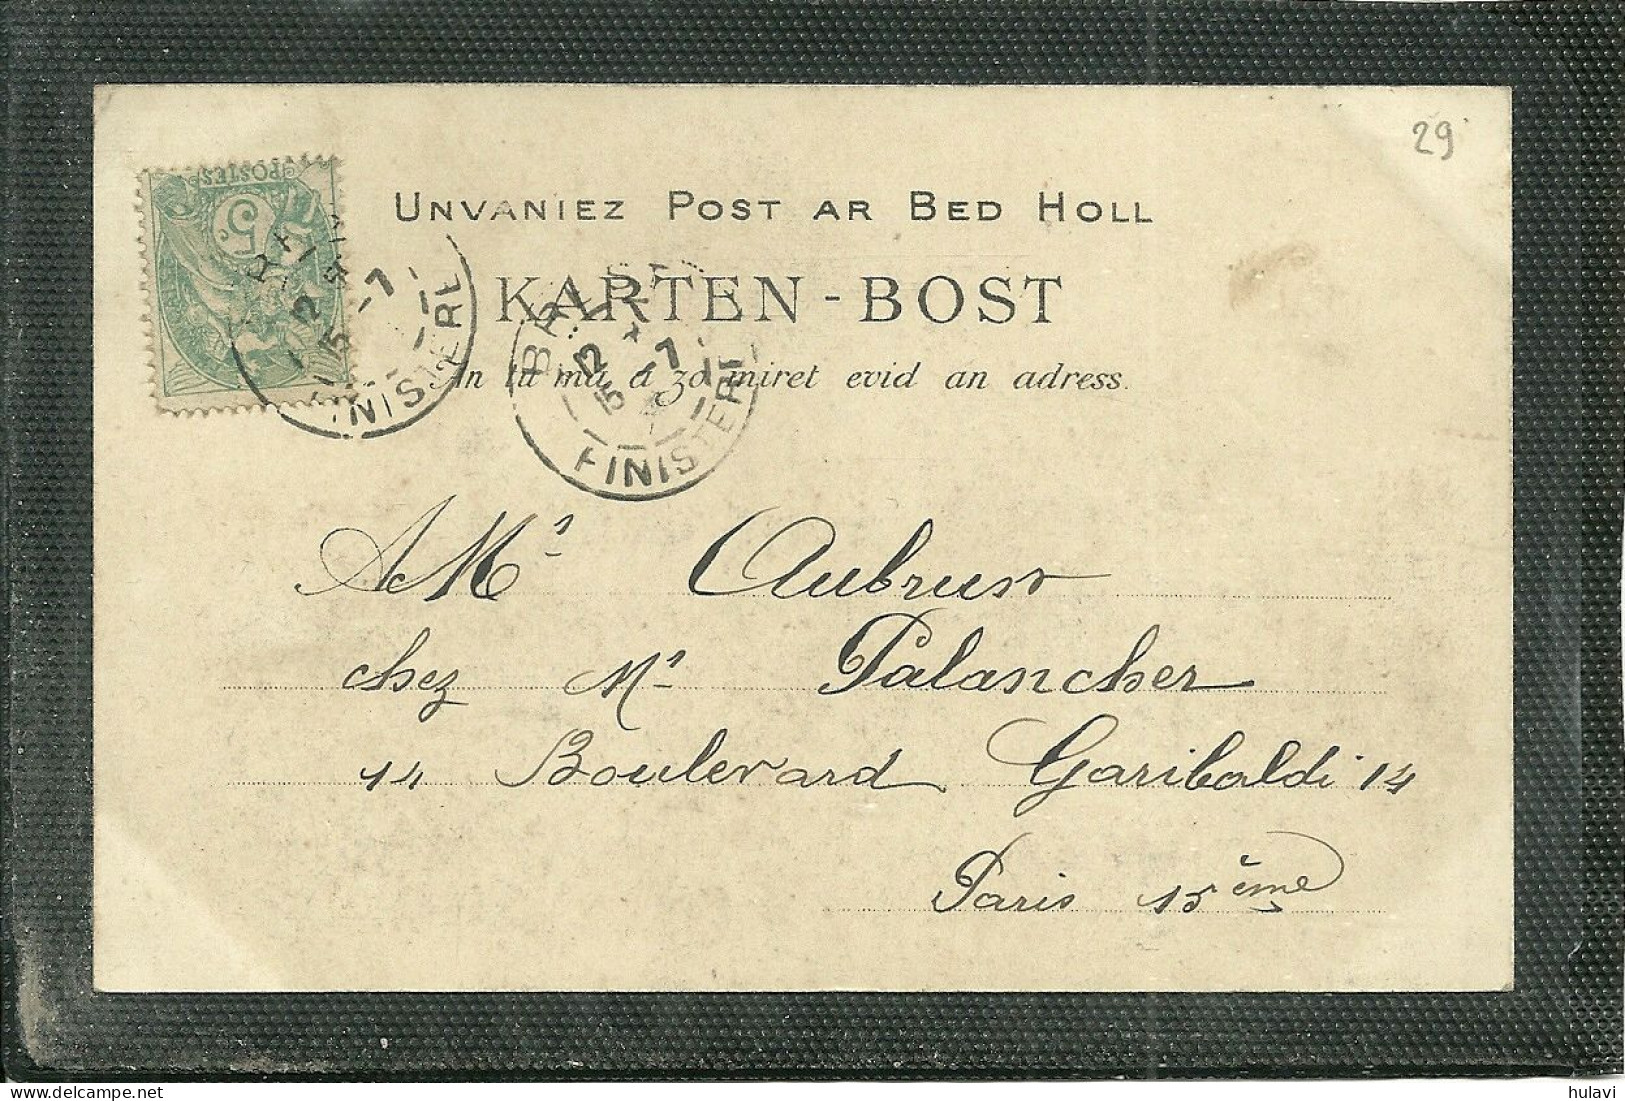 29
POSTES
5
UNVANIEZ POST AR BED HOLL
KARTEN-BOST
An tu ma a zo miret evid an adress.
BREST
12
15 -7
FINISTERE
12
15 -7
FINISTERE
A Mr
chez Mr Palancher
14 Boulevard Garibaldi 14
Paris 15ème
hulavi